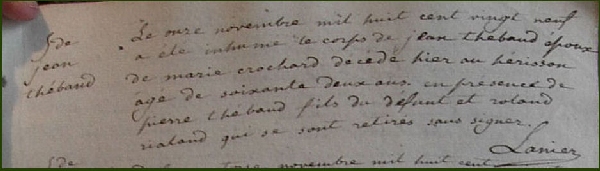 S. de
jean
thébaud
Le onze novembre mil huit cent vingt neuf
a été inhumé le corps de jean thébaud époux
de marie crochard décédé hier au hérisson
agé de soixante deux ans en présence de
pierre thébaud fils du défunt et roland
rialand qui se sont retirés sans signer.
Lanier
S. de
novembre mil huit cent